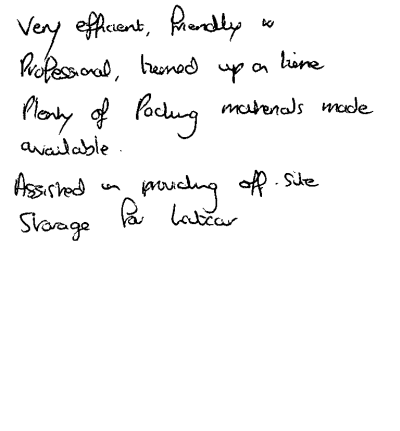 Very efficient, friendly &
Professional, turned up on time
Plenty of Packing materials made
available.
Assisted in providing off-site
Storage for